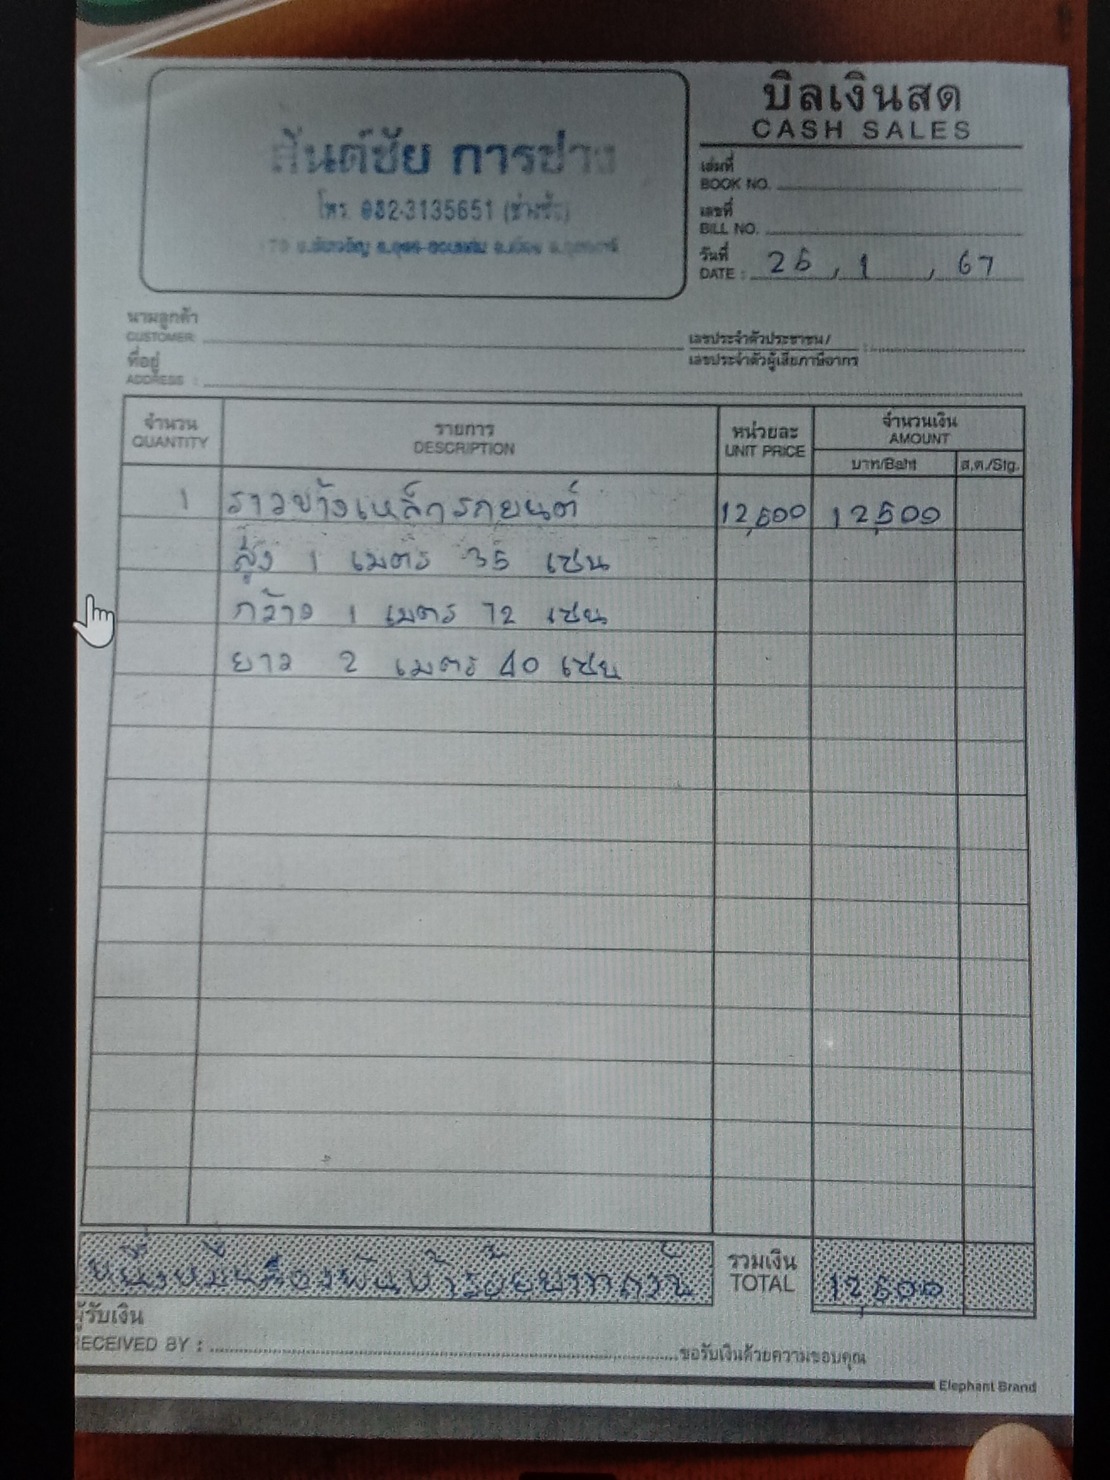 บิลเงินสด
CASH SALES
สันต์ชัย การช่าง
โทร. 082-3135651
เล่มที่
BOOK NO.
เลขที่
BILL NO.
วันที่
DATE : 26 , 1 , 67
นามลูกค้า
CUSTOMER
เลขประจำตัวประชาชน /
เลขประจำตัวผู้เสียภาษีอากร
ที่อยู่
ADDRESS :
จำนวน
QUANTITY
รายการ
DESCRIPTION
หน่วยละ
UNIT PRICE
จำนวนเงิน
AMOUNT
บาท/Baht ส.ต./Stg.
1 ราวข้างเหล็กรถยนต์ 12,500 12,500
สูง 1 เมตร 35 เซน
กว้าง 1 เมตร 72 เซน
ยาว 2 เมตร 40 เซน
หนึ่งหมื่นสองพันห้าร้อยบาทถ้วน
รวมเงิน
TOTAL 12,500
ผู้รับเงิน
RECEIVED BY : ขอรับเงินด้วยความขอบคุณ
Elephant Brand